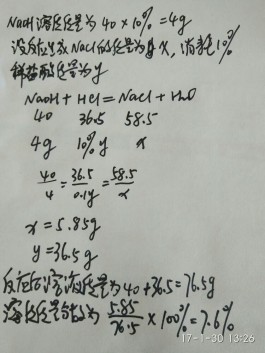 NaOH溶质质量为 40×10%=4g
设反应生成NaCl的质量为x,消耗10%
稀盐酸质量为y
NaOH+HCl=NaCl+H₂O
40 36.5 58.5
4g 10%y x
40/4=36.5/0.1y=58.5/x
x=5.85g
y=36.5g
反应后溶液质量为40+36.5=76.5g
溶质质量分数为 5.85/76.5×100%=7.6%
17-1-30 13:26